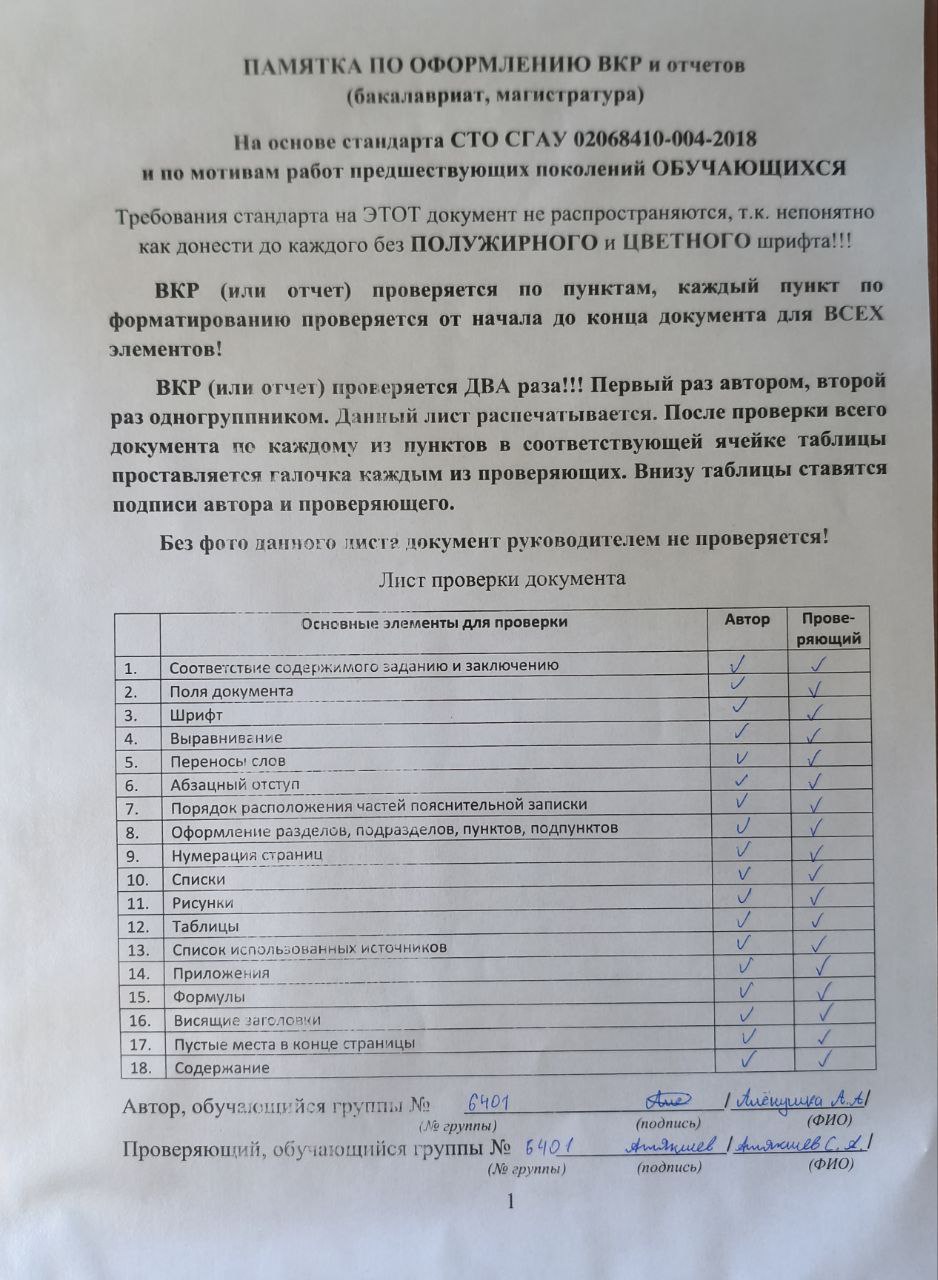 ПАМЯТКА ПО ОФОРМЛЕНИЮ ВКР и отчетов
(бакалавриат, магистратура)
На основе стандарта СТО СГАУ 02068410-004-2018
и по мотивам работ предшествующих поколений ОБУЧАЮЩИХСЯ
Требования стандарта на ЭТОТ документ не распространяются, т.к. непонятно
как донести до каждого без ПОЛУЖИРНОГО и ЦВЕТНОГО шрифта!!!
ВКР (или отчет) проверяется по пунктам, каждый пункт по
форматированию проверяется от начала до конца документа для ВСЕХ
элементов!
ВКР (или отчет) проверяется ДВА раза!!! Первый раз автором, второй
раз одногруппником. Данный лист распечатывается. После проверки всего
документа по каждому из пунктов в соответствующей ячейке таблицы
проставляется галочка каждым из проверяющих. Внизу таблицы ставятся
подписи автора и проверяющего.
Без фото данного листа документ руководителем не проверяется!
Лист проверки документа
Основные элементы для проверки Автор Прове-
ряющий
1. Соответствие содержимого заданию и заключению ✓ ✓
2. Поля документа ✓ ✓
3. Шрифт ✓ ✓
4. Выравнивание ✓ ✓
5. Переносы слов ✓ ✓
6. Абзацный отступ ✓ ✓
7. Порядок расположения частей пояснительной записки ✓ ✓
8. Оформление разделов, подразделов, пунктов, подпунктов ✓ ✓
9. Нумерация страниц ✓ ✓
10. Списки ✓ ✓
11. Рисунки ✓ ✓
12. Таблицы ✓ ✓
13. Список использованных источников ✓ ✓
14. Приложения ✓ ✓
15. Формулы ✓ ✓
16. Висящие заголовки ✓ ✓
17. Пустые места в конце страницы ✓ ✓
18. Содержание ✓ ✓
Автор, обучающийся группы № 6401 / Алёнушка А.А/
(№ группы) (подпись) (ФИО)
Проверяющий, обучающийся группы № 6401 Атякшев / Атякшев С.А./
(№ группы) (подпись) (ФИО)
1